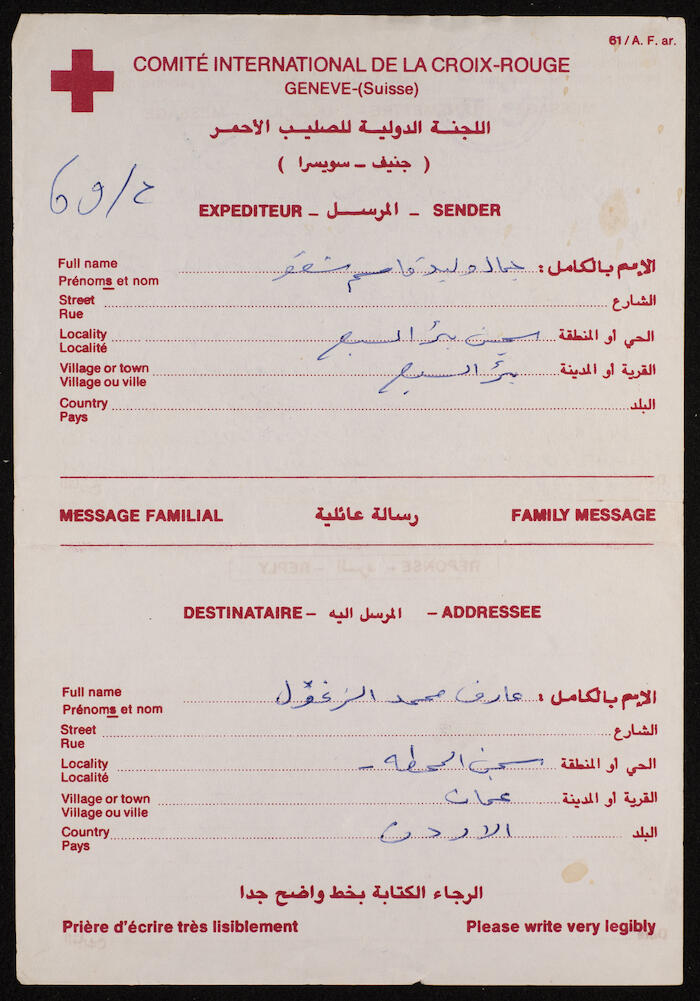 61/A. F. ar.
COMITÉ INTERNATIONAL DE LA CROIX-ROUGE
GENEVE-(Suisse)
اللجنة الدولية للصليب الأحمر
( جنيف - سويسرا )
69/ح
EXPEDITEUR - المرسل - SENDER
Full name الإسم بالكامل : جمال وليد قاسم
Prénoms et nom
Street الشارع
Rue
Locality الحي أو المنطقة سجن بئر السبع
Localité
Village or town القرية أو المدينة بئر السبع
Village ou ville
Country البلد
Pays
MESSAGE FAMILIAL رسالة عائلية FAMILY MESSAGE
DESTINATAIRE - المرسل اليه - ADDRESSEE
Full name الإسم بالكامل : عارف محمد الزغول
Prénoms et nom
Street الشارع
Rue
Locality الحي أو المنطقة سجن المحطه -
Localité
Village or town القرية أو المدينة عمان
Village ou ville
Country البلد الاردن
Pays
الرجاء الكتابة بخط واضح جدا
Prière d'écrire très lisiblement Please write very legibly